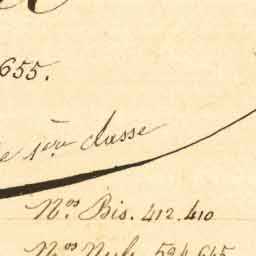 655.
e 1ère classe
Nos. Bis. 412, 410
Nos Nuls. 524, 645